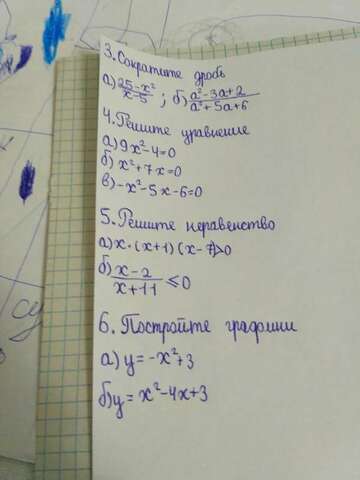 3. Сократите дробь
а) 25-x²/x-5 ; б) a²-3a+2/a²+5a+6
4. Решите уравнение
а) 9x²-4=0
б) x²+7x=0
в) -x²-5x-6=0
5. Решите неравенство
а) x·(x+1)(x-7)>0
б) x-2/x+11 ≤0
6. Постройте графики
а) y=-x²+3
б) y=x²-4x+3